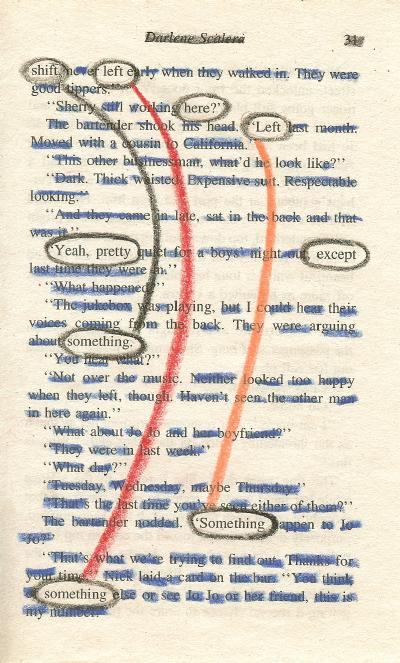 Darlene Scalera 31
shift, never left early when they walked in. They were
good tippers.''
''Sherry still working here?''
The bartender shook his head. ''Left last month.
Moved with a cousin to California.''
''This other businessman, what'd he look like?''
''Dark. Thick waisted. Expensive suit. Respectable
looking.''
''And they came in late, sat in the back and that
was it.''
''Yeah, pretty quiet for a boys' night out except
last time they were in.''
''What happened?''
''The jukebox was playing, but I could hear their
voices coming from the back. They were arguing
about something.''
''You hear what?''
''Not over the music. Neither looked too happy
when they left, though. Haven't seen the other man
in here again.''
''What about Jo Jo and her boyfriend?''
''They were in last week.''
''What day?''
''Tuesday, Wednesday, maybe Thursday.''
''That's the last time you've seen either of them?''
The bartender nodded. ''Something happen to Jo
Jo?''
''That's what we're trying to find out. Thanks for
your time.'' Nick laid a card on the bar. ''You think
something else or see Jo Jo or her friend, this is
my number.''